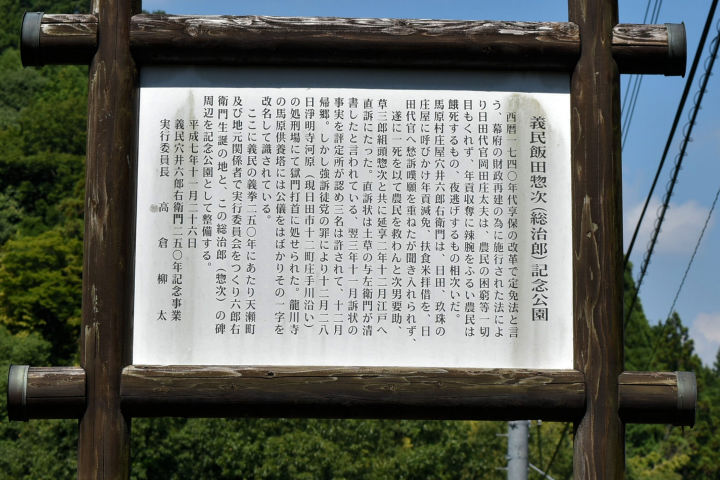 義民飯田惣次(総治郎)記念公園
西暦一七四〇年代享保の改革で定免法と言
う、幕府の財政再建の為に施行された法によ
り日田代官岡田庄太夫は、農民の困窮等一切
目もくれず、年貢収奪に辣腕をふるい農民は
餓死するもの、夜逃げするもの相次いだ。
馬原村庄屋穴井六郎右衛門は、日田、玖珠の
庄屋に呼びかけ年貢減免、扶食米拝借を、日
田代官へ愁訴嘆願を重ねたが聞き入れられず、
遂に一死を以て農民を救わんと次男要助、
草三郎組頭惣次と共に延享二年十二月江戸へ
直訴にたった。直訴状は土草の与左衛門が清
書したと言われている、翌三年十一月訴状の
事実を評定所が認め三名は許されて、十二月
帰郷。しかし強訴徒党の罪により十二月二八
日浄明寺河原(現日田市十二町庄手川沿い)
の処刑場にて獄門打首に処せられた。龍川寺
の馬原供養塔には公儀をはばかりその一字を
改名して識されている。
ここに義民の義挙二五〇年にあたり天瀬町
及び地元関係者で実行委員会をつくり六郎右
衛門生誕の地と、この総治郎(惣次)の碑
周辺を記念公園として整備する。
平成七年十一月二十六日
義民穴井六郎右衛門二五〇年記念事業
実行委員長 高倉柳太